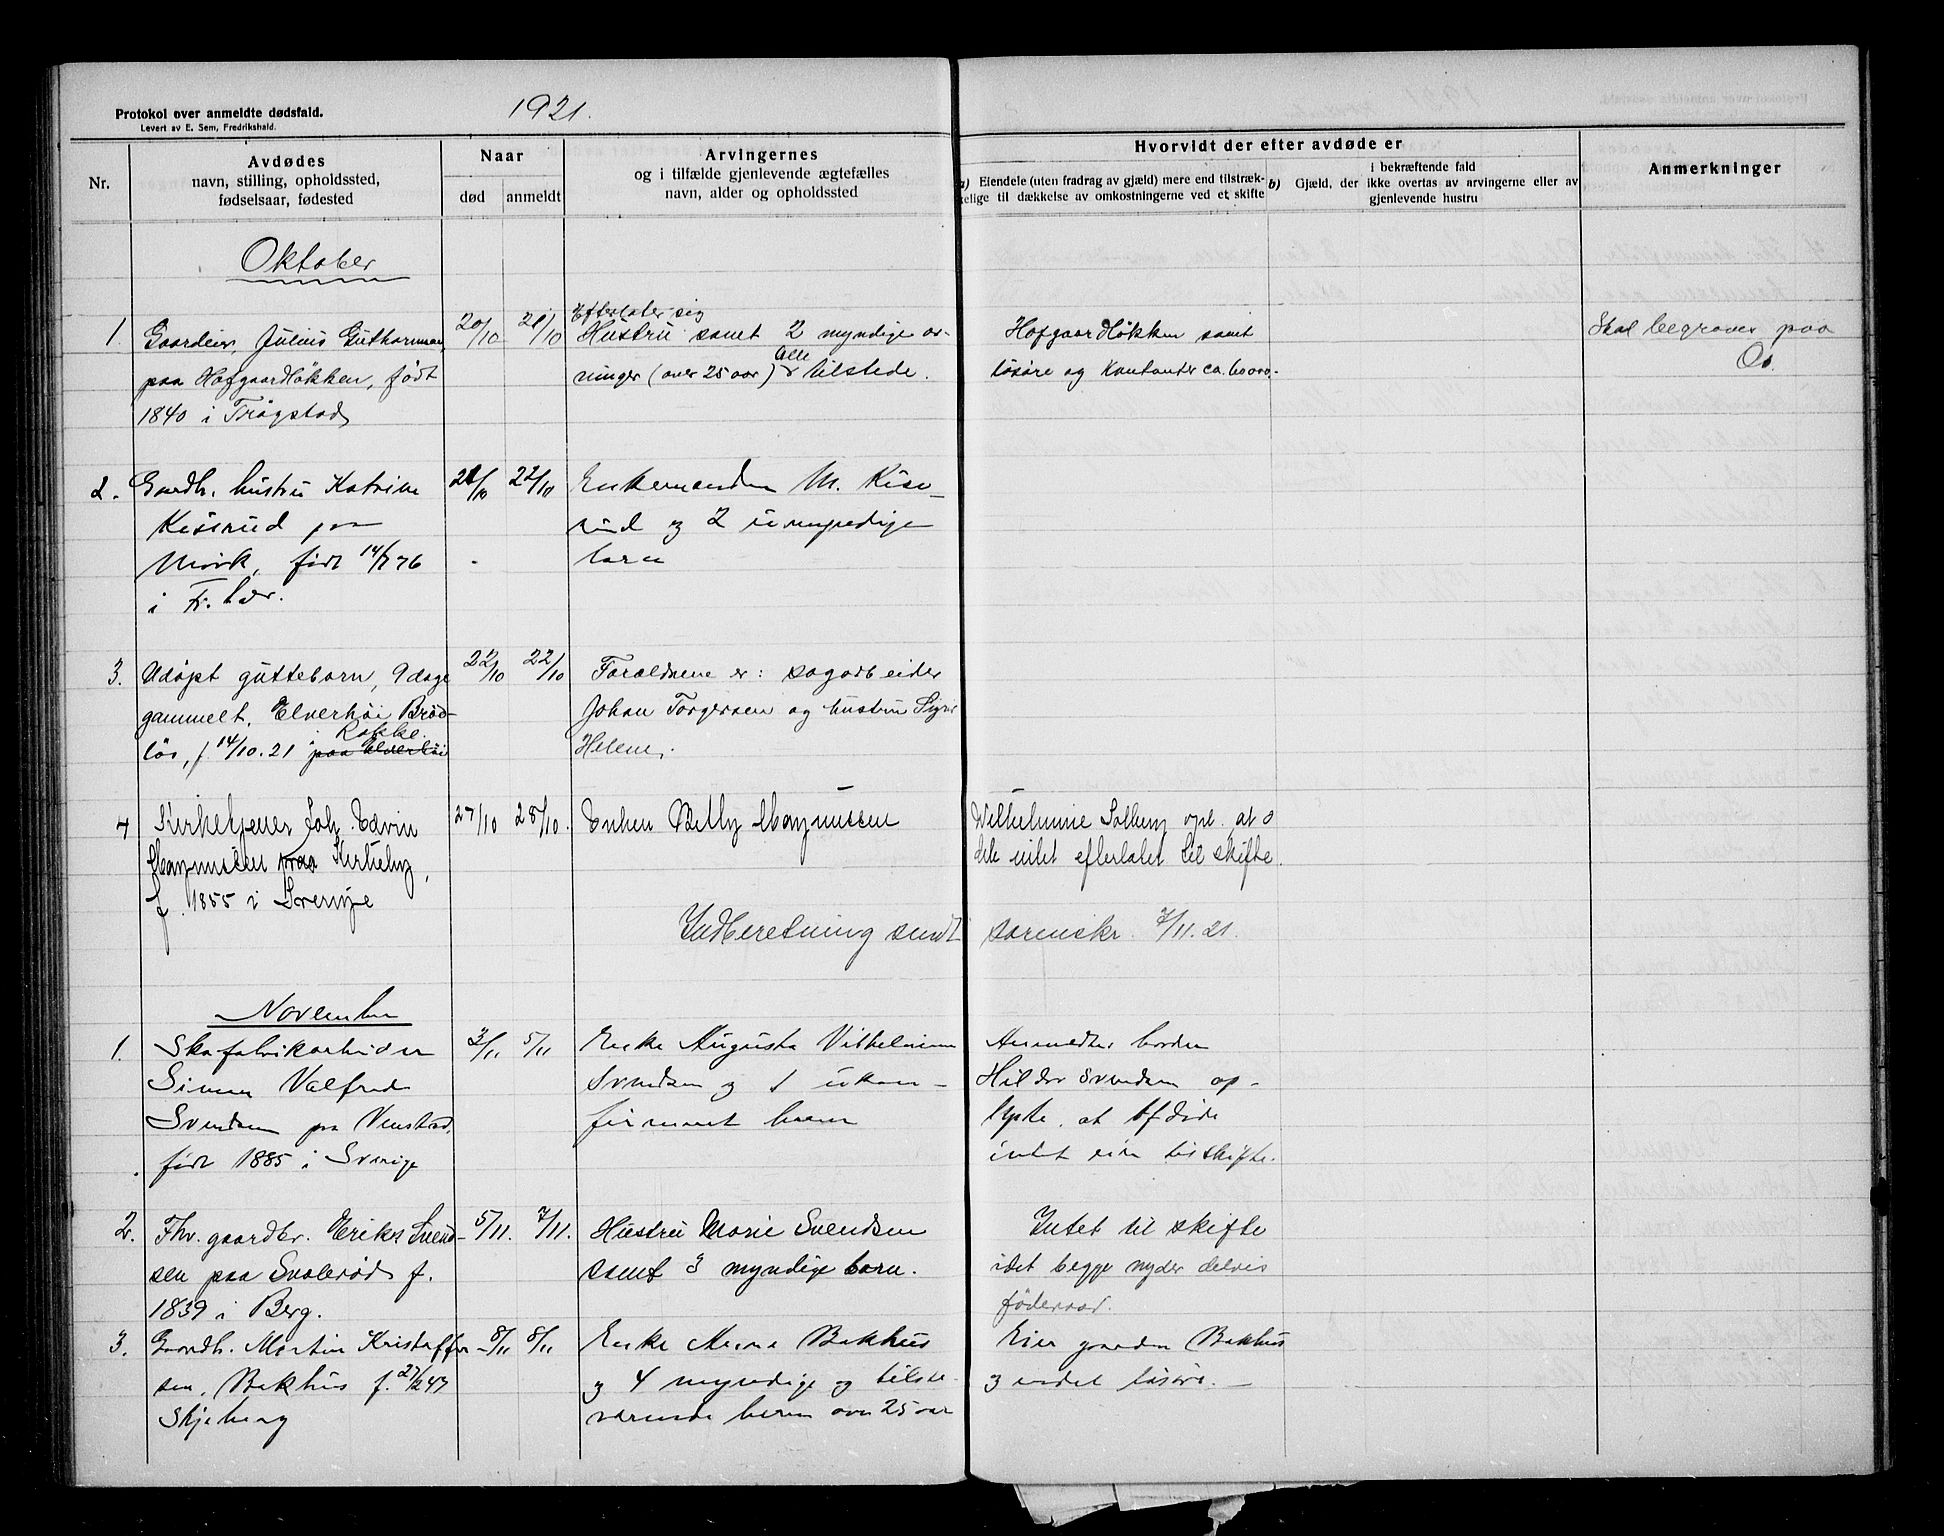 Protokol over anmeldte dødsfald.
Levert av E. Sem, Fredrikshald.
1921.
Nr.
Avdødes
navn, stilling, opholdssted,
fødselsaar, fødested
Naar
død
anmeldt
Arvingernes
og i tilfælde gjenlevende ægtefælles
navn, alder og opholdssted
Hvorvidt der efter avdøde er
a) Eiendele (uten fradrag av gjæld) mere end tilstræk-
kelige til dækkelse av omkostningerne ved et skifte
i bekræftende fald
b) Gjæld, der ikke overtas av arvingerne eller av
gjenlevende hustru
Anmerkninger
Oktober
1.
Gaardeier, Julius Guthormsen,
paa Hofgaardløkken, født
1840 i Trøgstad
20/10
21/10
Efterlater sig
Hustru samt 2 myndige ar-
vinger (over 25 aar) alle tilstede.
Hofgaardløkken samt
løsøre og Kontanter ca.
Skal begraves paa
Os.
2.
Gaardb. hustru Katrine
Kisrud paa
Mörk, født 14/7 76
i Fr. hver.
21/10
22/10
Enkemanden M. Kise-
rud og 2 umyndige
barn
3.
Udøpt guttebarn, 9 dage
gammelt, Elverhøi Brød-
løs, f. 14/10.21 i Rokke.
paa Elverhøi
22/10
22/10
Forældrene er: sagarbeider
Johan Torgersen og hustru
Helene.
4
Kirketjener Joh. Edvin
Magnussen paa Kirkeby,
f. 1855 i Sverige
27/10
28/10.
Enken Betty Magnussen
Wilhelmine Solberg opl. at
intet efterlatt til skifte.
Indberetning sendt sorenskr. 7/11.21.
November
1.
Skofabrikarbeider
Simen Valfred
Svendsen paa Venstad,
født 1885 i Sverige
3/11
5/11
Enke Augusta Vilhelmine
Svendsen og 1 ukon-
firmert barn
Anmelder broren
Hilder Svendsen op-
lyste, at afdøde
intet eier til skifte.
2.
Fhv. gaardbr. Erik Svend-
sen paa Svalerød f.
1839 i Berg.
5/11.
7/11.
Hustru Marie Svendsen
samt 3 myndige barn.
Intet til skifte
idet begge nyder delvis
føderaad.
3.
Gaardb. Martin Kristoffer-
sen, Bakhus f. 27/2 47
Skjeberg
8/11
8/11
Enke Anna Bakhus
og 4 myndige og tilste-
værende barn over 25 aar
Eier gaarden Bakhus
og endel løsøre. —